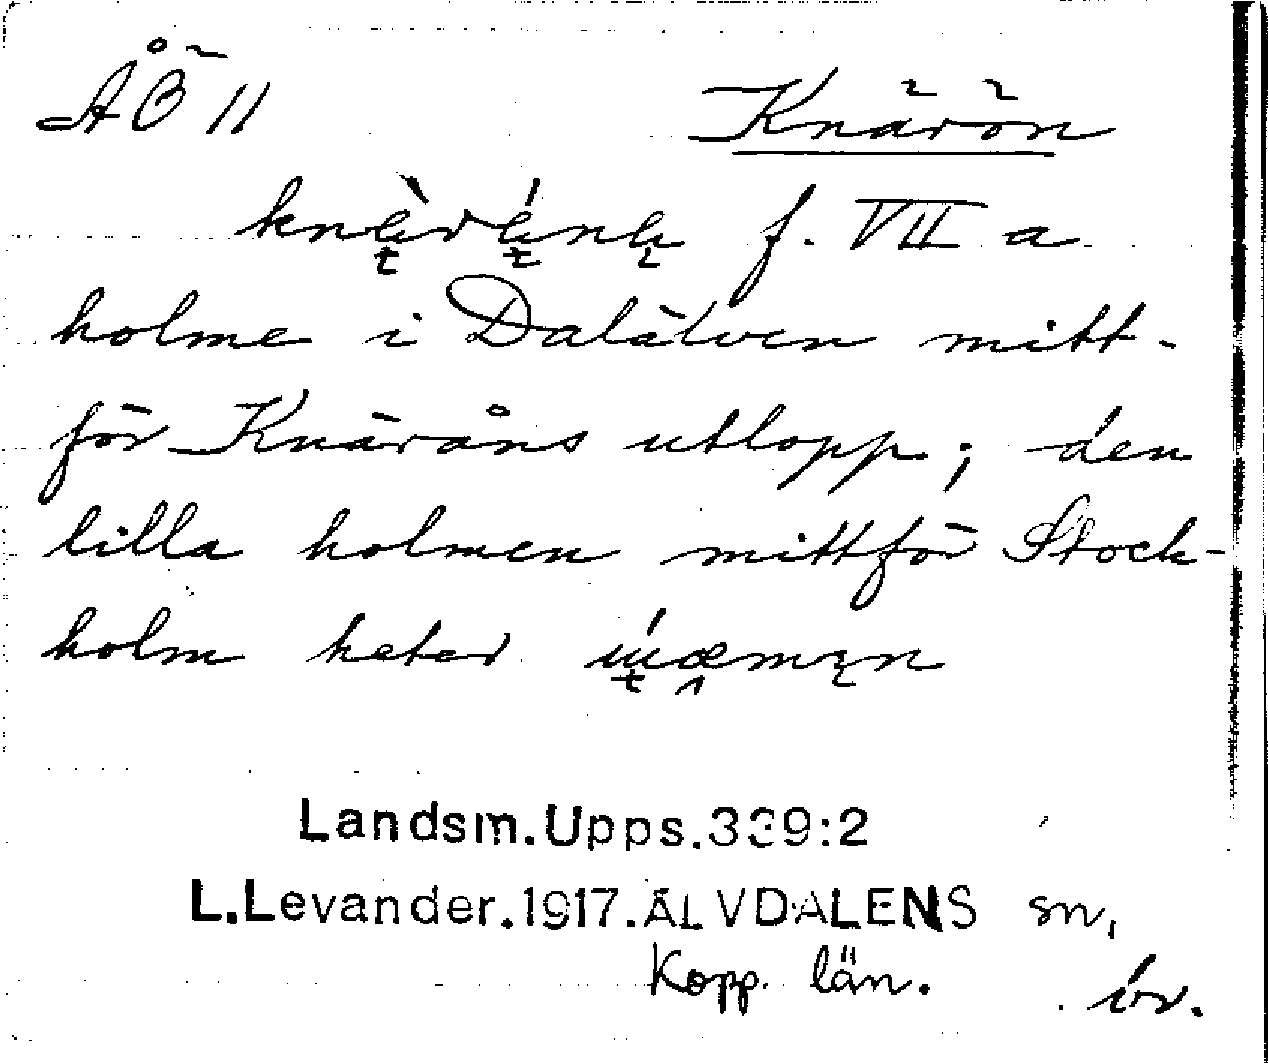 ÅÖ 11 Knärön
f. VII a
holme i Dalälven mitt-
för Knäråns utlopp; den
lilla holmen mittför Stock-
holm heter
Landsm. Upps. 339:2
L. Levander. 1917. ÄLVDALENS sn,
Kopp. län. öv.